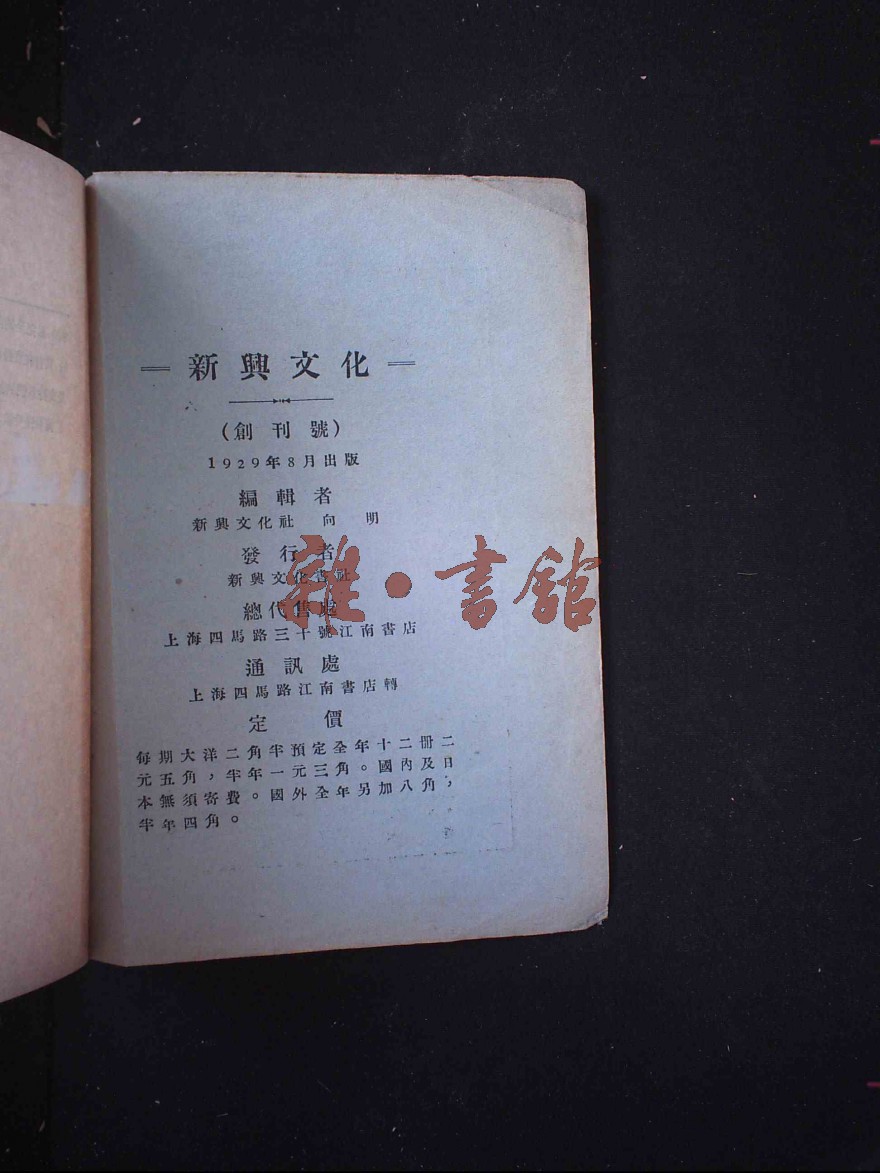 新興文化
(創刊號)
1929年8月出版
編輯者
新興文化社 向 明
發行者
新興文化書社
總代售處
上海四馬路三十號江南書店
通訊處
上海四馬路江南書店轉
定 價
每期大洋二角半預定全年十二冊二
元五角,半年一元三角。國內及日
本無須寄費。國外全年另加八角,
半年四角。
雜·書館